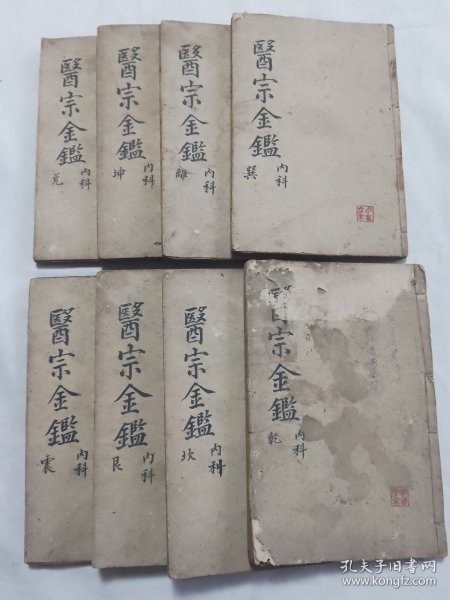 醫宗金鑑
內科
巽
醫宗金鑑
內科
離
醫宗金鑑
內科
坤
醫宗金鑑
內科
兌
宗金鑑
內科
乾
醫宗金鑑
內科
坎
醫宗金鑑
內科
艮
醫宗金鑑
內科
震
孔夫子旧书网
www.kongfz.com